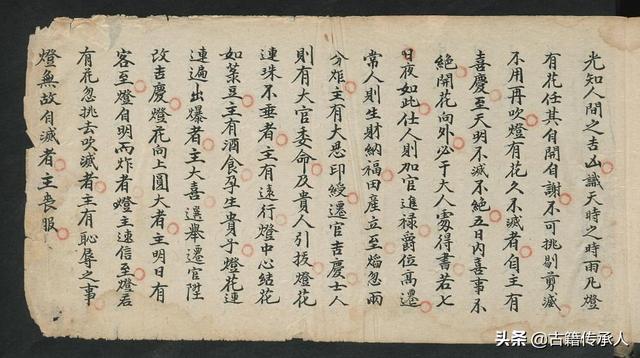 光知人間之吉凶識天時之時雨凡燈
有花任其自開自謝不可挑剔剪滅
不用再吹燈有花久不滅者自主有
喜慶至天明不滅不絕五日內喜事不
絕開花向外必于大人處得書若七
日夜如此仕人則加官進祿爵位高遷
常人則生財納福田產立至焰忽兩
分炸主有大恩印綬遷官吉慶士人
則有大官委命及貴人引拔燈花
連珠不垂者主有遠行燈中心結花
如菉豆主有酒食孕生貴子燈花連
連遍出爆者主大喜選舉遷官陞
改吉慶燈花向上圓大者主明日有
客至燈自明而炸者燈主速信至燈若
有花忽挑去吹滅者主有恥辱之事
燈無故自滅者主喪服
头条 @古籍传承人